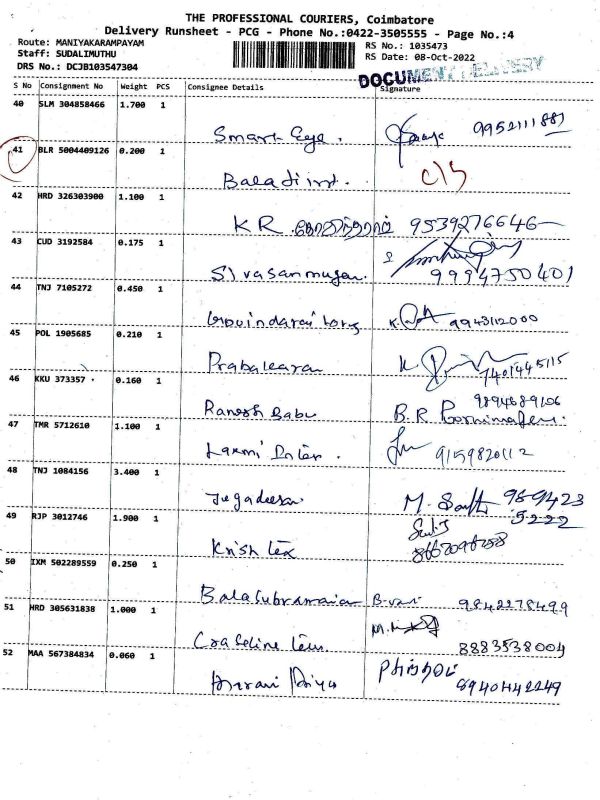 THE PROFESSIONAL COURIERS, Coimbatore
Delivery Runsheet - PCG - Phone No.:0422-3505555 - Page No.:4
Route: MANIYAKARAMPAYAM
RS No.: 1035473
Staff: SUDALIMUTHU
RS Date: 08-Oct-2022
DRS No.: DCJB103547304
DOCUMENT DELIVERY
S No Consignment No Weight PCS Consignee Details Signature
40 SLM 304858466 1.700 1
Smart Eye. 9952111881
41 BLR 5004409126 0.200 1
Balaji
42 HRD 326303900 1.100 1
KR 9539276646
43 CUD 3192584 0.175 1
Sivasanmugan 9994750401
44 TNJ 7105272 0.450 1
Govindaraj 9943112000
45 POL 1905685 0.210 1
Prabakaran K. 7401445115
46 KKU 373357 0.160 1
9894689106
Ramesh Babu B.R
47 TMR 5712610 1.100 1
Laxmi 9159820112
48 TNJ 1084156 3.400 1
Jegadeesan M. 989423
5222
49 RJP 3012746 1.900 1
Krish Tex
50 IXM 502289559 0.250 1
Balasubramanian 9842278499
51 HRD 305631838 1.000 1
8883538004
52 MAA 567384834 0.060 1
Priya 8940442249